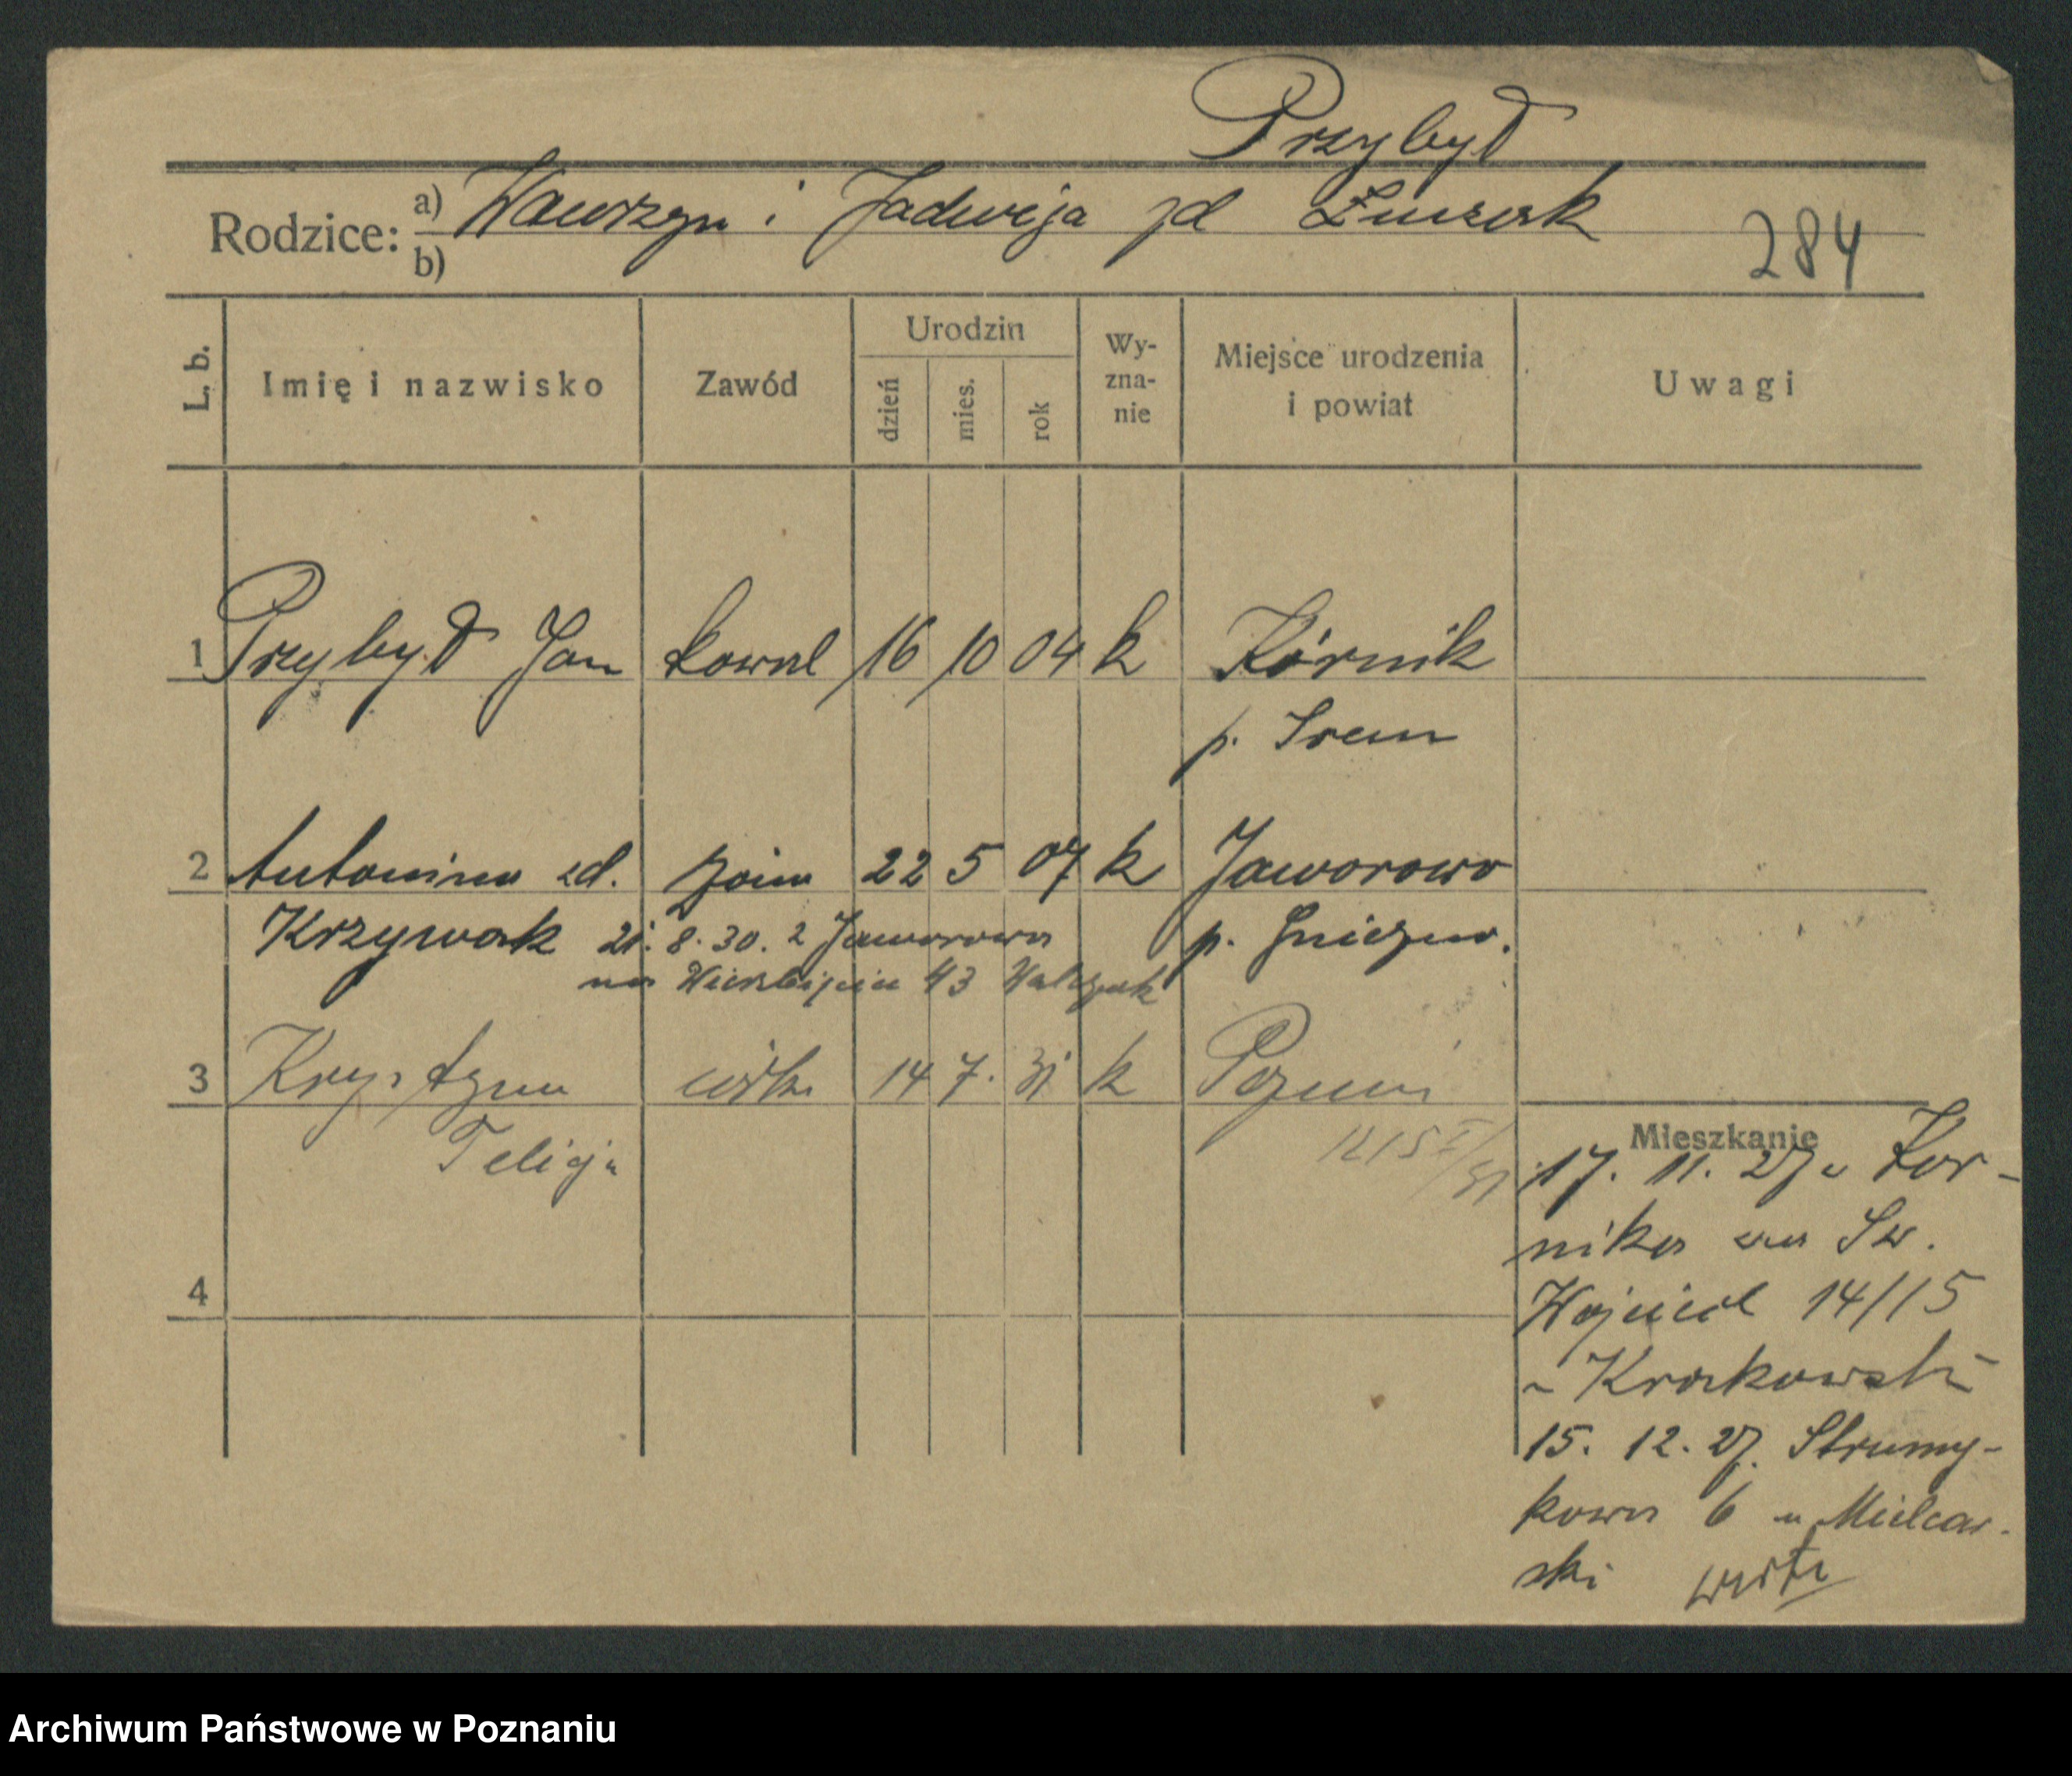 Przybył
Rodzice: a) Wawrzyn i Jadwiga zd
b)
284
L. b. Imię i nazwisko Zawód Urodzin dzień mies. rok Wy-zna-nie Miejsce urodzenia i powiat Uwagi
1 Przybył Jan kowal 16 10 04 k Kórnik
p. Śrem
2 Antonina zd. żona 22 5 07 k Jaworowo
Krzywak 21. 8. 30. z Jaworowa p. Gniezno.
na Wierzbięcice 43 Walczak
3 Krystyna córka 14 7. 31 k Poznań
Felicja
Mieszkanie
17. 11. 27 z Kór-
nika na Św.
Wojciech 14/15
u Krakowski
15. 12. 27. Strumy-
kowa 6 u Mielcar-
ski verte
4
Archiwum Państwowe w Poznaniu